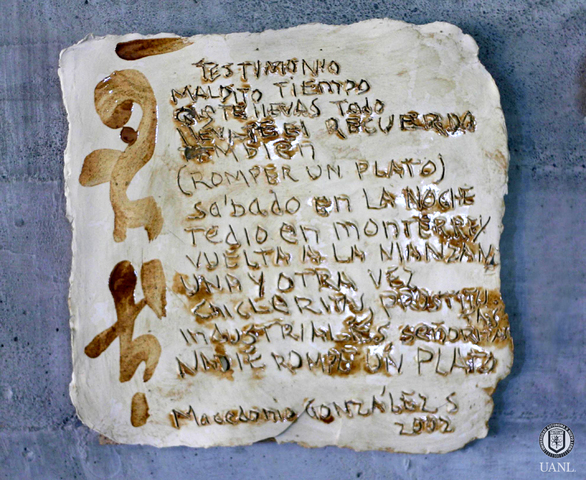 TESTIMONIO
MALDITO TIEMPO
QUE TE LLEVAS TODO
LLÉVATE EL RECUERDO
TAMBIÉN
(ROMPER UN PLATO)
sábado en LA NOCHE
Tedio en monterrey
VUELTA A LA MANZANA
UNA Y OTRA VEZ
CHICLERITAS, PROSTITUTAS
INDUSTRIALES, señoritas
NADIE ROMPE UN PLATO
Macedonio GONZÁLEZ S
2002
UANL